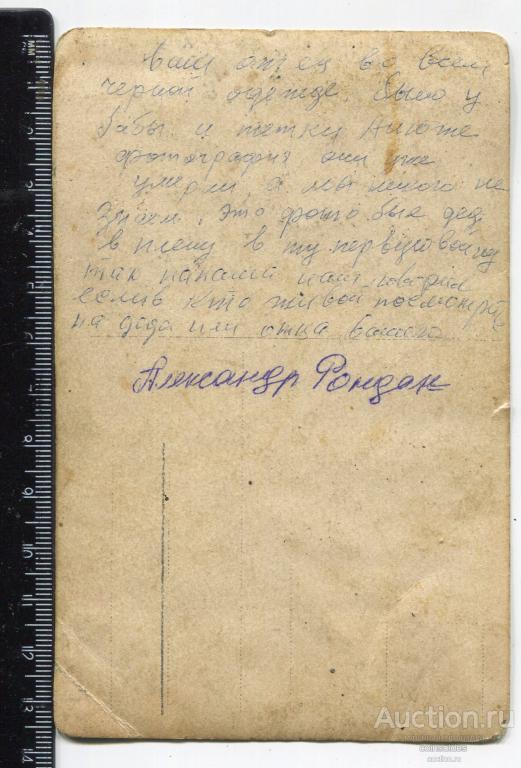 Ваш отец во всем
черной одежде. было у
бабы и тетки Анюте
фотография они уже
умерли, а мы никого не
знаем. Это фото был дед
в плену в ту первую войну
так папаша нам говорил
если кто живой посмотрите
на деда или отца вашего
Александр Рондак
Auction.ru
coinsoides
auction.ru